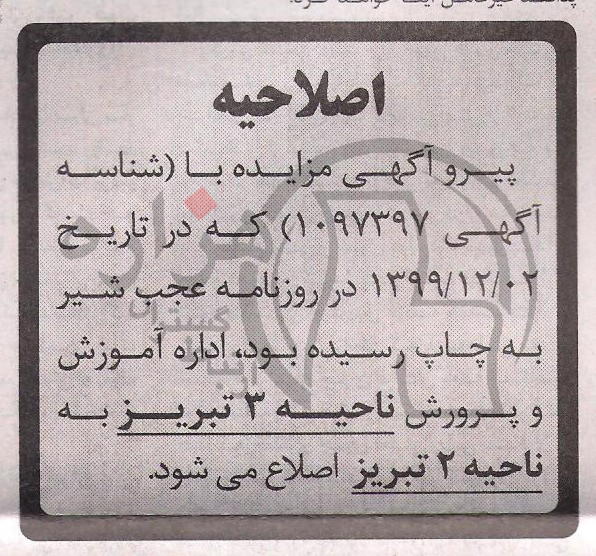 اصلاحیه
پیرو آگهی مزایده با (شناسه
آگهی ۱۰۹۷۳۹۷) که در تاریخ
۱۳۹۹/۱۲/۰۲ در روزنامه عجب شیر
به چاپ رسیده بود، اداره آموزش
و پرورش ناحیه ۳ تبریز به
ناحیه ۲ تبریز اصلاع می شود.
هزاره
گستران